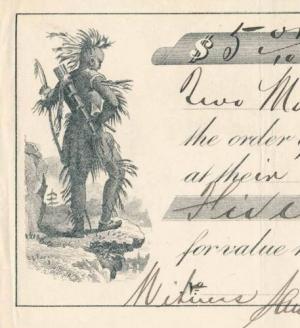 $ 5
Two Mo
the order
at their
Five
for value
Witness